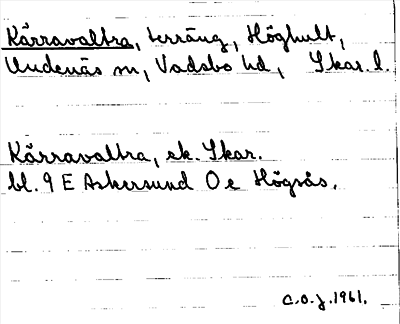 Kärravaltra, terräng, Höghult,
Undenäs sn, Vadsbo hd, Skar. l.
Kärravaltra, ek. Skar.
bl. 9 E Askersund O e Högsås.
C.O.J. 1961.